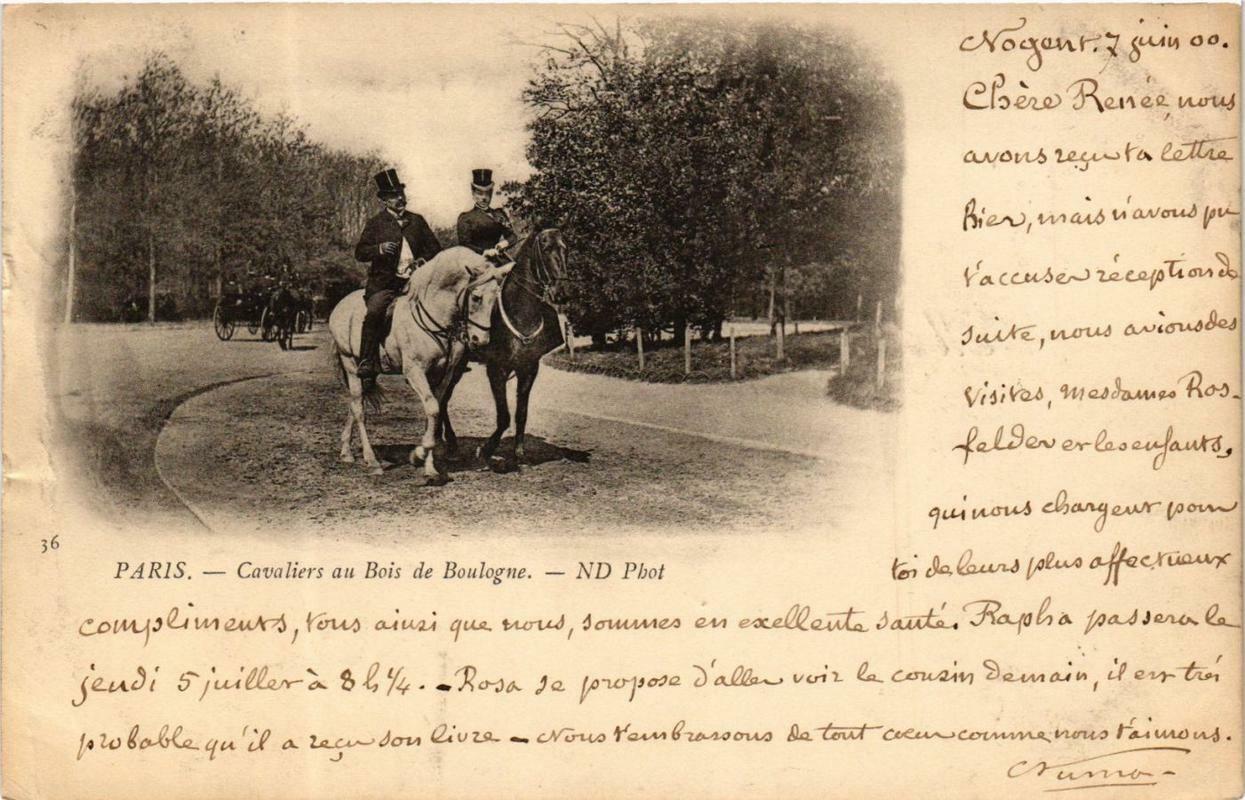 Nogent. 7 juin 00.
Chère Renée, nous
avons reçu ta lettre
hier, mais n'avons pu
t'accuser réception de
suite, nous avions des
visites, Mesdames Ros-
felder et les enfants,
qui nous chargent pour
toi de leurs plus affectueux
36
PARIS. — Cavaliers au Bois de Boulogne. — ND Phot
compliments, tous ainsi que nous, sommes en excellente santé. Rapha passera le
jeudi 5 juillet à 8 h ¼. - Rosa se propose d'aller voir le cousin demain, il est très
probable qu'il a reçu son livre - Nous t'embrassons de tout cœur comme nous t'aimons.
Numa -